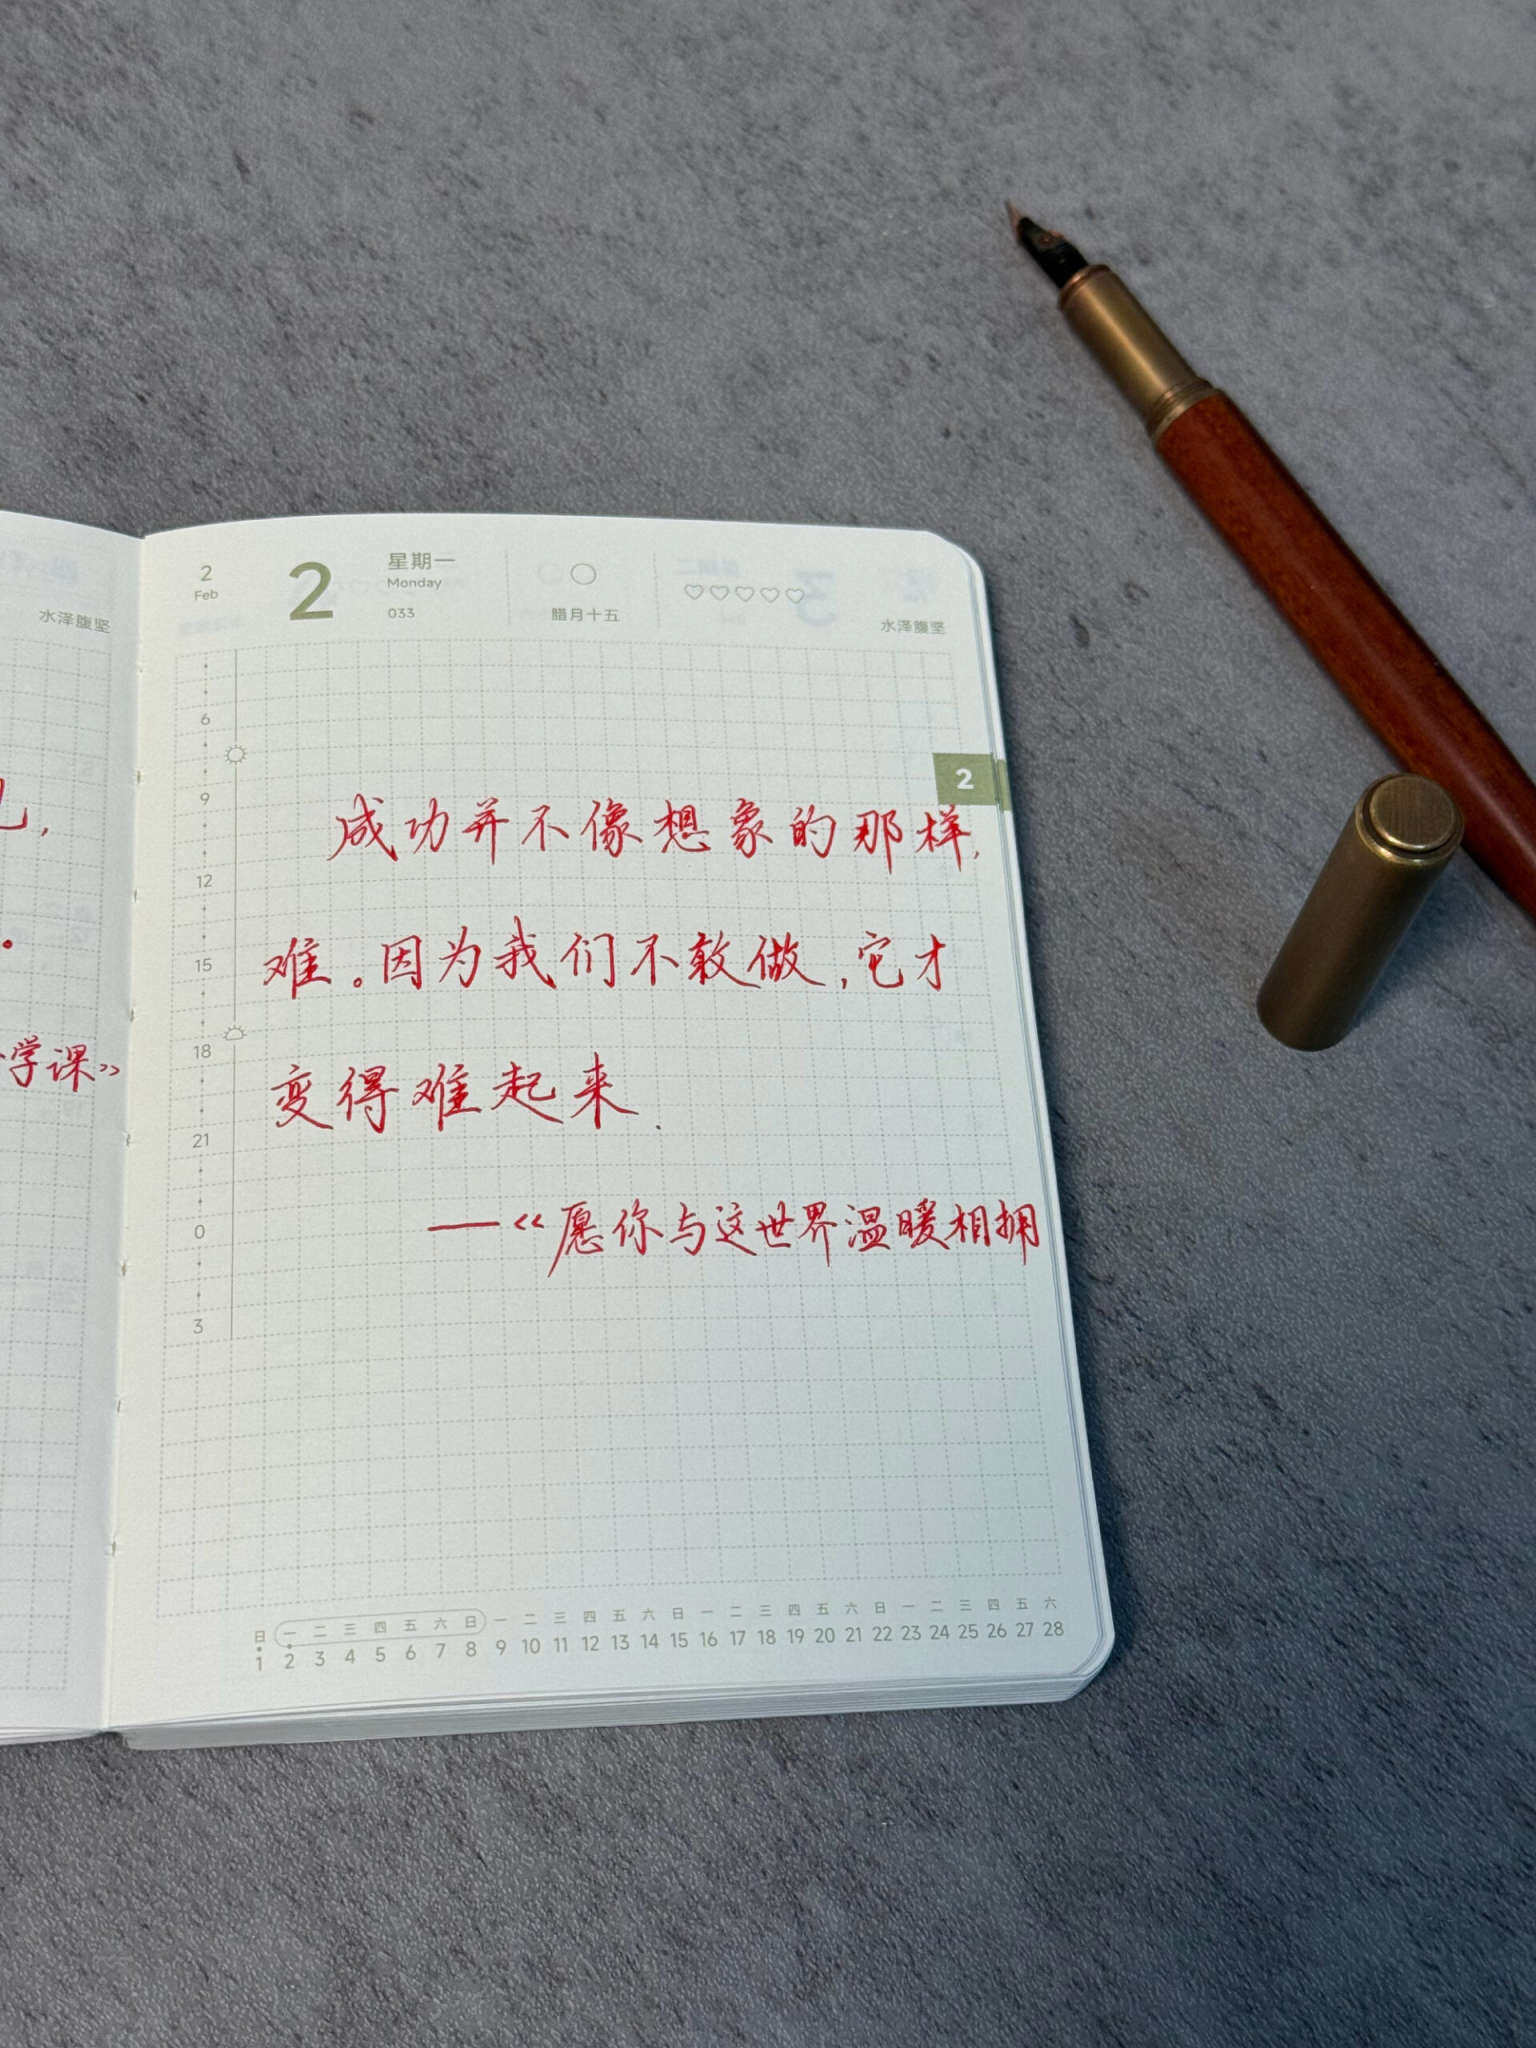 水泽腹坚
也,
。
学课》
2
Feb
2
星期一
Monday
033
腊月十五
水泽腹坚
6
9
12
15
18
21
0
3
2
成功并不像想象的那样,
难。因为我们不敢做,它才
变得难起来.
——《愿你与这世界温暖相拥
日 一 二 三 四 五 六 日 一 二 三 四 五 六 日 一 二 三 四 五 六 日 一 二 三 四 五 六
1 2 3 4 5 6 7 8 9 10 11 12 13 14 15 16 17 18 19 20 21 22 23 24 25 26 27 28